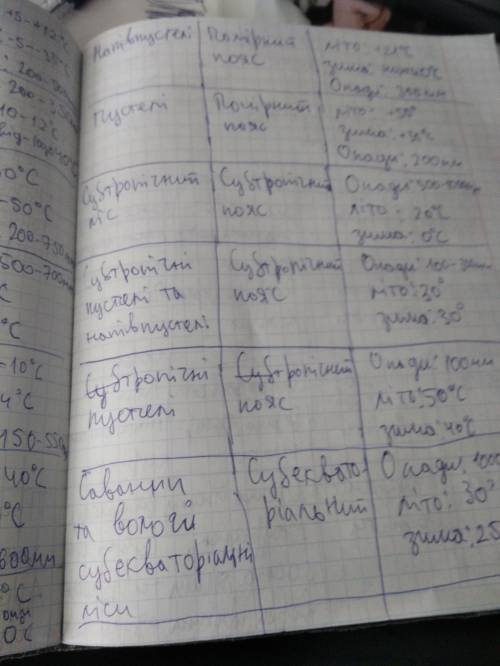 +5-+12°C
-5--35°C
Напівпустелі Помірний пояс літо: +25°C
зима:
Опади: 300мм
Пустелі Помірний пояс літо: +30°
зима:
Опади: 200мм
10-12°C
0°C
-50°C
200-750мм
500-700мм
Субтропічний ліс Субтропічний пояс Опади:
літо: 20°C
зима: 0°C
Субтропічні пустелі та напівпустелі Субтропічний пояс Опади: 100-
літо: 30°
зима: 30°
-10°C
4°C
150-550
Субтропічні пустелі Субтропічний пояс Опади: 100мм
літо: 50°C
зима: 40°C
40°C
°C
600мм
°C
0°C
Савани та вологі субекваторіальні ліси Субекваторіальний Опади: 1000
літо: 30°
зима: 25